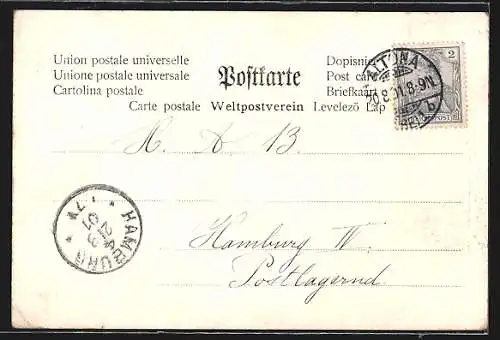 Union postale universelle
Unione postale universale
Cartolina postale
Postkarte
Dopisnice
Post card
Briefkaart
Carte postale Weltpostverein Levelező Lap
2
ALTONA
8.01.8-9N
H. A 13.
HAMBURG
01
Hamburg IV.
Postlagernd